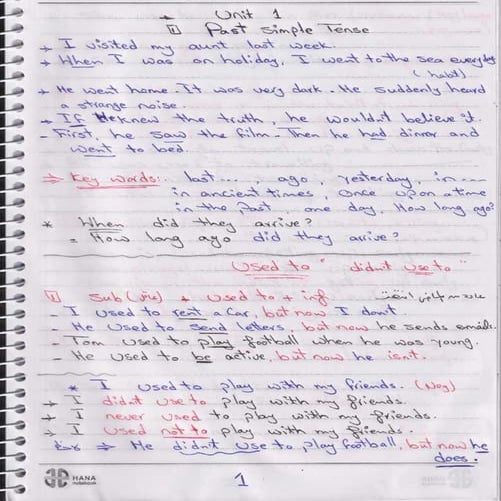 → Unit 1
① Past Simple Tense
→ I visited my aunt last week.
→ When I was on holiday, I went to the sea everyday
(habit)
→ He went home. It was very dark. He suddenly heard
a strange noise.
→ If He knew the truth, he wouldn't believe it.
- First, he saw the film. Then he had dinner and
went to bed.
⇒ Key words: last...., ago, yesterday, in ....
in ancient times, once upon a time
in the past, one day, How long ago?
* When did they arrive?
= How long ago did they arrive?
Used to " didn't use to "
① Sub (فاعل) + used to + inf
- I used to rent a car, but now I don't.
- He used to send letters, but now he sends emails.
- Tom used to play football when he was young.
- He used to be active, but now he isn't.
* I used to play with my friends. (Neg)
→ I didn't use to play with my friends.
→ I never used to play with my friends.
→ I used not to play with my friends.
Ex ⇒ He didn't use to play football, but now he
does.
HANA
notebook
1